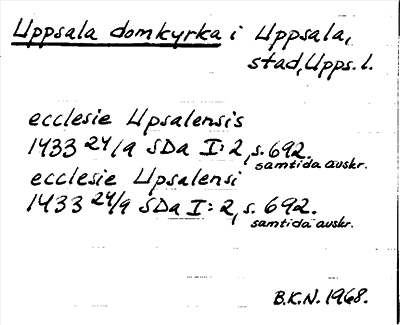 Uppsala domkyrka i Uppsala,
stad, Upps. l.
ecclesie Upsalensis
1433 24/9 SDa I:2, s. 692.
samtida avskr.
ecclesie Upsalensi
1433 24/9 SDa I:2, s. 692.
samtida avskr.
B.K.N. 1968.